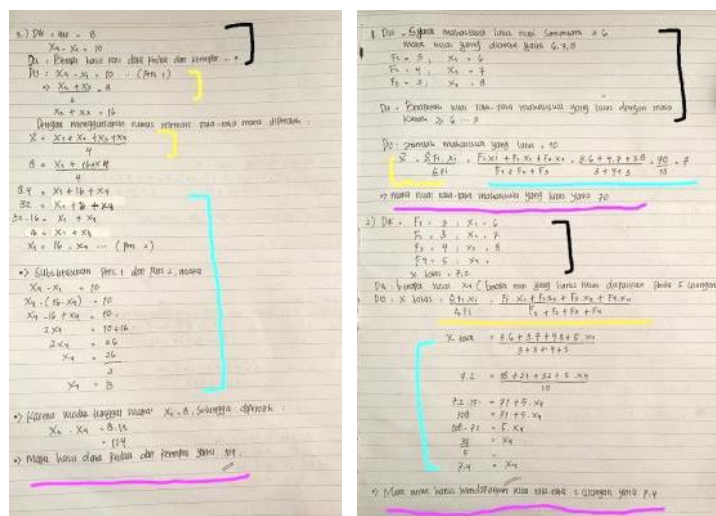 3.) Dik :
X4 - X1 = 10
Dit : Berapa hasil kali data kedua dan keempat ... ?
DIJ : X4 - X1 = 10 ... (Pers 1)
=> X2 + X3 = 8
2
X2 + X3 = 16
Dengan menggunakan rumus rata-rata maka diperoleh :
X̄ = X1 + X2 + X3 + X4
4
8 = X1 + 16 + X4
4
8.4 = X1 + 16 + X4
32 = X1 + 16 + X4
32 - 16 = X1 + X4
16 = X1 + X4
X1 = 16 - X4 ... (Pers 2)
•> Substitusikan Pers. 1 dan Pers 2, maka
X4 - X1 = 10
X4 - (16 - X4) = 10
X4 - 16 + X4 = 10
2X4 = 10 + 16
2X4 = 26
X4 = 26
2
X4 = 13
•> Karena modus tunggal maka X2 = 8, Sehingga diperoleh :
X2 . X4 = 8.13
= 104
•> Maka hasil data kedua dan keempat yaitu 104.
1 Dik : Syarat mahasiswa lulus nilai ≥ 6
Maka nilai yang diambil yaitu 6, 7, 8
F1 = 3 ; X1 = 6
F2 = 4 ; X2 = 7
F3 = 3 ; X3 = 8
Dit : nilai rata-rata mahasiswa yang lulus dengan
≥ 6 ... ?
DIJ : Jumlah mahasiswa yang lulus = 10
X̄ = ΣFi.Xi = F1.X1 + F2.X2 + F3.X3 = 3.6 + 4.7 + 3.8 = 70 = 7
ΣFi F1 + F2 + F3 3 + 4 + 3 10
=> Maka nilai rata-rata mahasiswa yang lulus yaitu 70
2) Dik = F1 = 3 ; X1 = 6
F2 = 3 ; X2 = 7
F3 = 4 ; X3 = 8
F4 = 5 ; X4 =
X total = 7,2
Dit : berapa nilai X4 ( nilai yang harus didapatkan pada 5 ulangan
DIJ : X total = ΣFi.Xi = F1.X1 + F2.X2 + F3.X3 + F4.X4
ΣFi F1 + F2 + F3 + F4
X total = 3.6 + 3.7 + 4.8 + 5.X4
3 + 3 + 4 + 5
7.2 = 18 + 21 + 32 + 5.X4
7.2 . 15 = 71 + 5.X4
108 = 71 + 5.X4
= 5.X4
= X4
5
7.4 = X4
•> Maka harus mendapatkan nilai rata-rata 5 ulangan yaitu 7.4